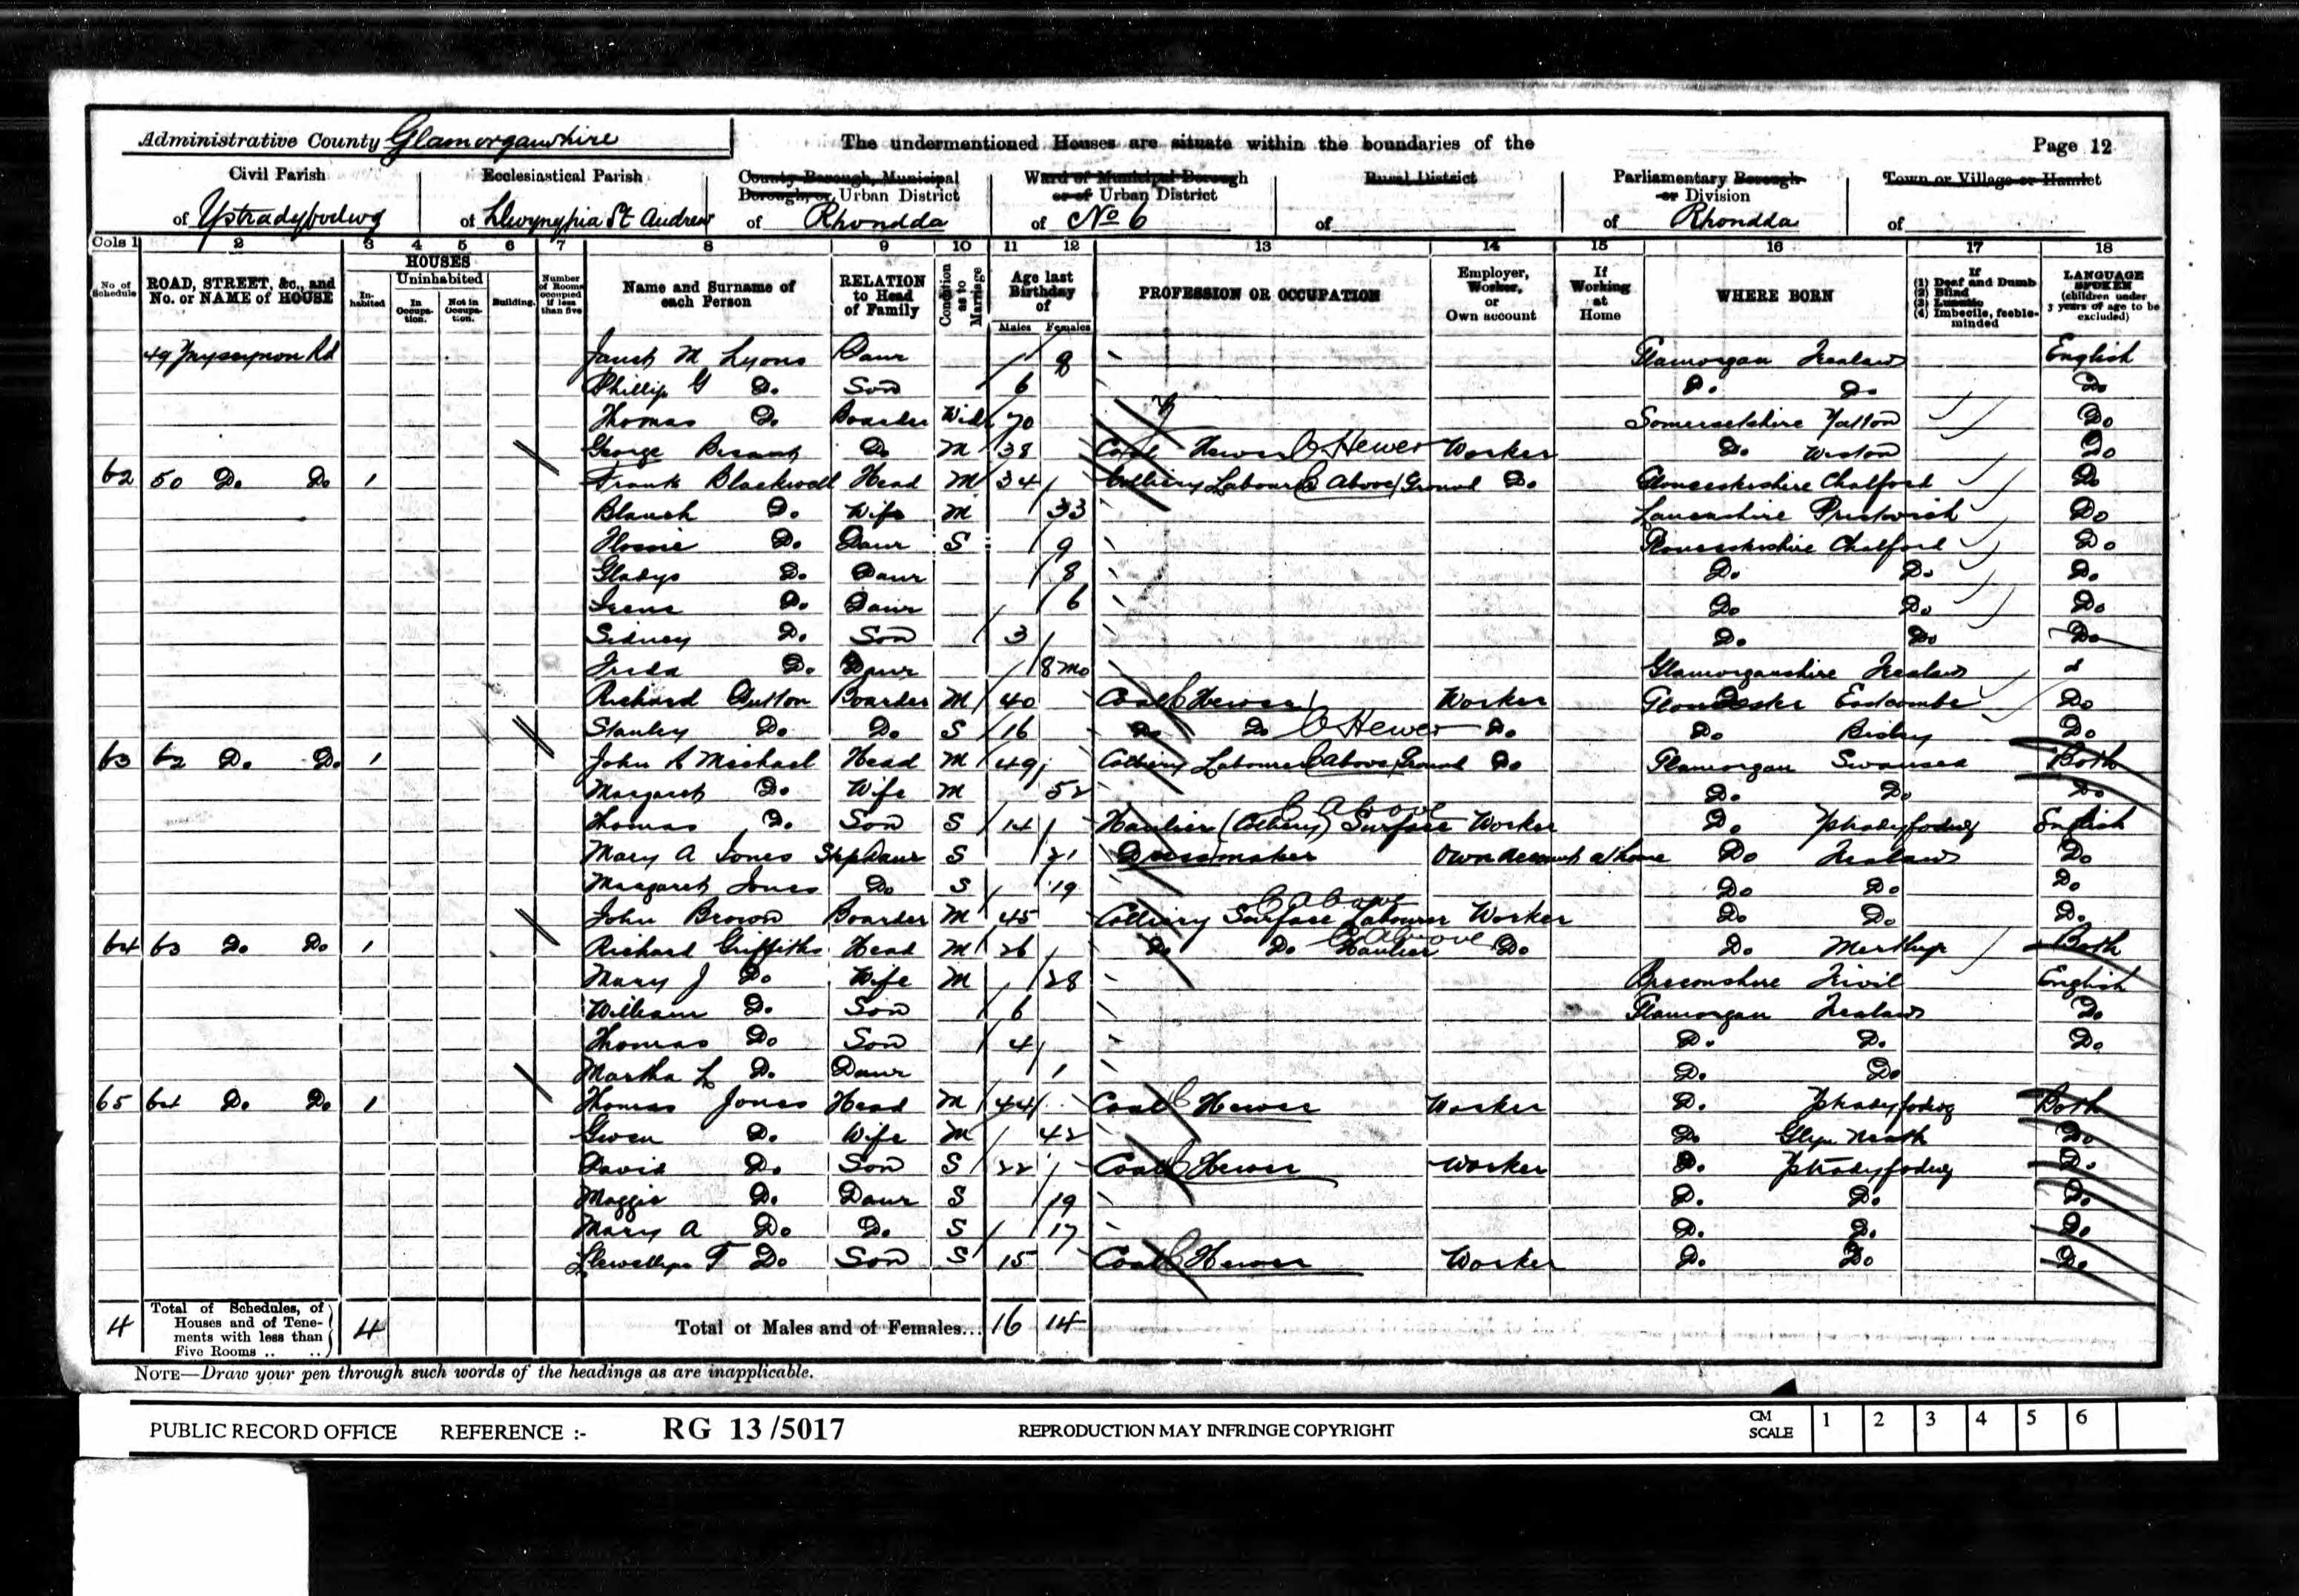 Administrative County Glamorganshire The undermentioned Houses are situate within the boundaries of the Page 12
Civil Parish Ecclesiastical Parish County Borough, Municipal Borough, or Urban District Ward of Municipal Borough or of Urban District Rural District Parliamentary Borough or Division Town or Village or Hamlet
of Ystradyfodwg of Llwynypia St Andrew of Rhondda of No 6 of of Rhondda of
Cols 1 2 3 4 5 6 7 8 9 10 11 12 13 14 15 16 17 18
No. of Schedule ROAD, STREET, &c., and No. or NAME of HOUSE HOUSES Inhabited Uninhabited In Occupation. Not in Occupation. Building. Number of Rooms occupied if less than five Name and Surname of each Person RELATION to Head of Family Condition as to Marriage Age last Birthday of Males Females PROFESSION OR OCCUPATION Employer, Worker, or Own account If Working at Home WHERE BORN If (1) Deaf and Dumb (2) Blind (3) Lunatic (4) Imbecile, feeble-minded LANGUAGE SPOKEN (children under 3 years of age to be excluded)
49 Rd M Lyons Daur 8 Glamorgan Trealaw English
Phillip G Do Son 6 Do Do Do
Thomas Do Boarder Wid 70 Somersetshire Yatton Do
George Do M 38 Coal Hewer Hewer Worker Do Weston Do
62 50 Do Do 1 Frank Blackwell Head M 34 Colliery Labourer Above Ground Do Gloucestershire Chalford Do
Blanch Do Wife M 33 Lancashire Prestwich Do
Do Daur S 9 Gloucestershire Chalford Do
Gladys Do Daur 8 Do Do Do
Irene Do Daur 6 Do Do Do
Sidney Do Son 3 Do Do Do
Freda Do Daur 8 mo Glamorganshire Trealaw
Richard Boarder M 40 Coal Hewer Worker Gloucester Eastcombe Do
Stanley Do Do S 16 Do Do Hewer Do Do Bisley Do
63 62 Do Do 1 John R Michael Head M 49 Colliery Labourer Above Ground Do Glamorgan Swansea Both
Margaret Do Wife M 52 Do Do Do
Thomas Do Son S 14 Haulier (Colliery) Surface Above Worker Do Ystradyfodwg English
Mary A Jones Step Daur S 21 Dressmaker Own account at home Do Trealaw Do
Margaret Jones Do S 19 Do Do Do
John Brown Boarder M 45 Colliery Surface Labourer Above Worker Do Do Do
64 63 Do Do 1 Richard Griffiths Head M 26 Do Do Haulier Above Do Do Merthyr Both
Mary J Do Wife M 28 Breconshire English
William Do Son 6 Glamorgan Trealaw Do
Thomas Do Son 4 Do Do Do
Martha L Do Daur 1 Do Do
65 64 Do Do 1 Thomas Jones Head M 44 Coal Hewer Worker Do Ystradyfodwg Both
Gwen Do Wife M 42 Do Glyn Neath Do
David Do Son S 22 Coal Hewer Worker Do Ystradyfodwg Do
Maggie Do Daur S 19 Do Do Do
Mary A Do Do S 17 Do Do Do
Llewellyn T Do Son S 15 Coal Hewer Worker Do Do Do
4 Total of Schedules, of Houses and of Tenements with less than Five Rooms .. .. 4 Total of Males and of Females... 16 14
NOTE—Draw your pen through such words of the headings as are inapplicable.
PUBLIC RECORD OFFICE REFERENCE :- RG 13/5017 REPRODUCTION MAY INFRINGE COPYRIGHT CM SCALE 1 2 3 4 5 6